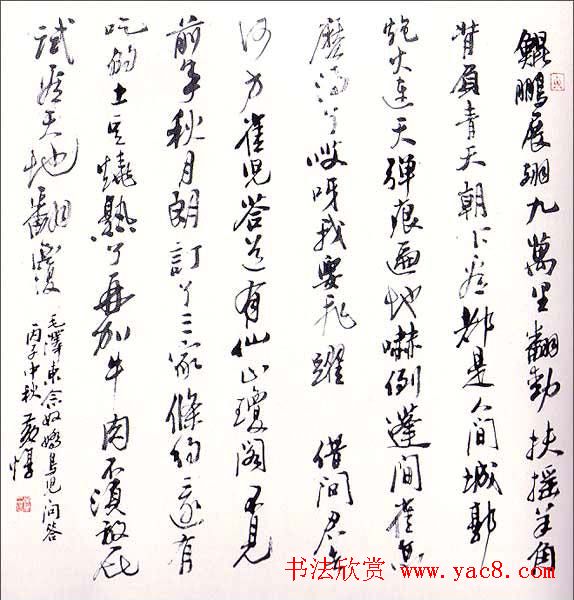 鯤鵬展翅九萬里翻動扶摇羊角
背負青天朝下看都是人间城郭
炮火連天弹痕遍地嚇倒蓬间雀怎
麽得了哎呀我要飛躍 借问君去
何方雀兒答道有仙山瓊阁不見
前年秋月朗訂了三家條约還有
吃的土豆燒熟了再加牛肉不須放屁
試看天地翻覆
毛澤東念奴嬌鳥兒问答
丙子中秋黄惇
书法欣赏 www.yac8.com